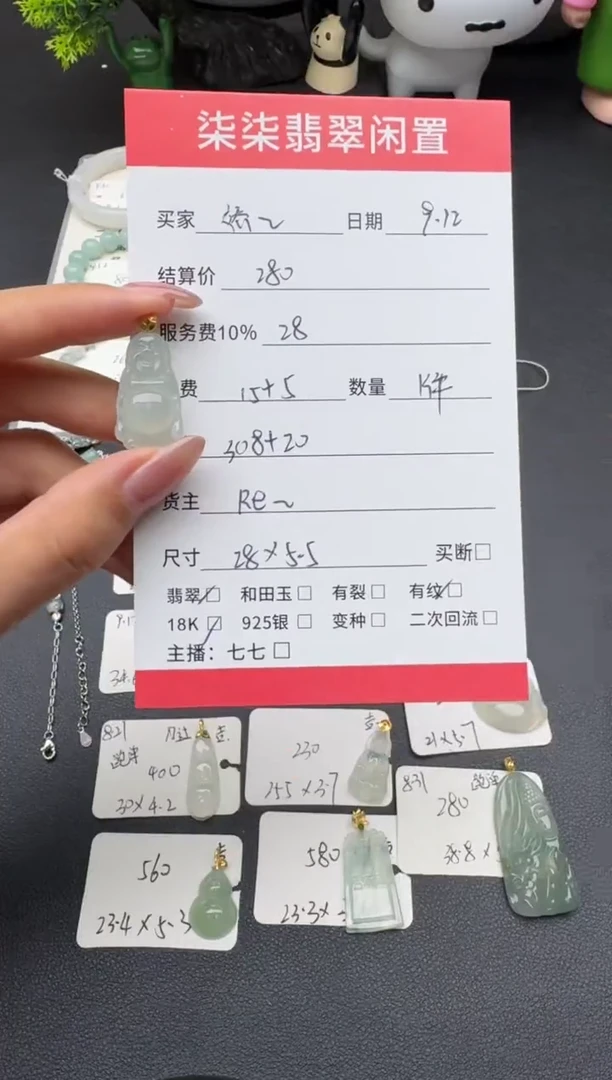 柒柒翡翠闲置
买家 日期 9.12
结算价 280
服务费10% 28
费 15+5 数量 1件
308+20
货主 Re~
尺寸 28×5.5 买断□
翡翠☑ 和田玉□ 有裂□ 有纹☑
18K☑ 925银□ 变种□ 二次回流□
主播：七七□
821
400
30×4.2
230
255×3.7
21×5.7
831
280
38.8×
560
23.4×5.3
580
23.3×